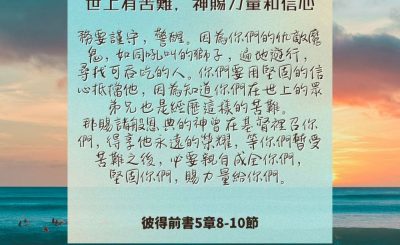 世上有苦難，神賜力量和信心
務要謹守，警醒。因為你們的仇敵魔
鬼，如同吼叫的獅子，遍地遊行，
尋找可吞吃的人。你們要用堅固的信
心抵擋他，因為知道你們在世上的眾
弟兄也是經歷這樣的苦難。
那賜諸般恩典的神曾在基督裡召你
們，得享他永遠的榮耀，等你們暫受
苦難之後，必要親自成全你們，
堅固你們，賜力量給你們。
彼得前書5章8-10節